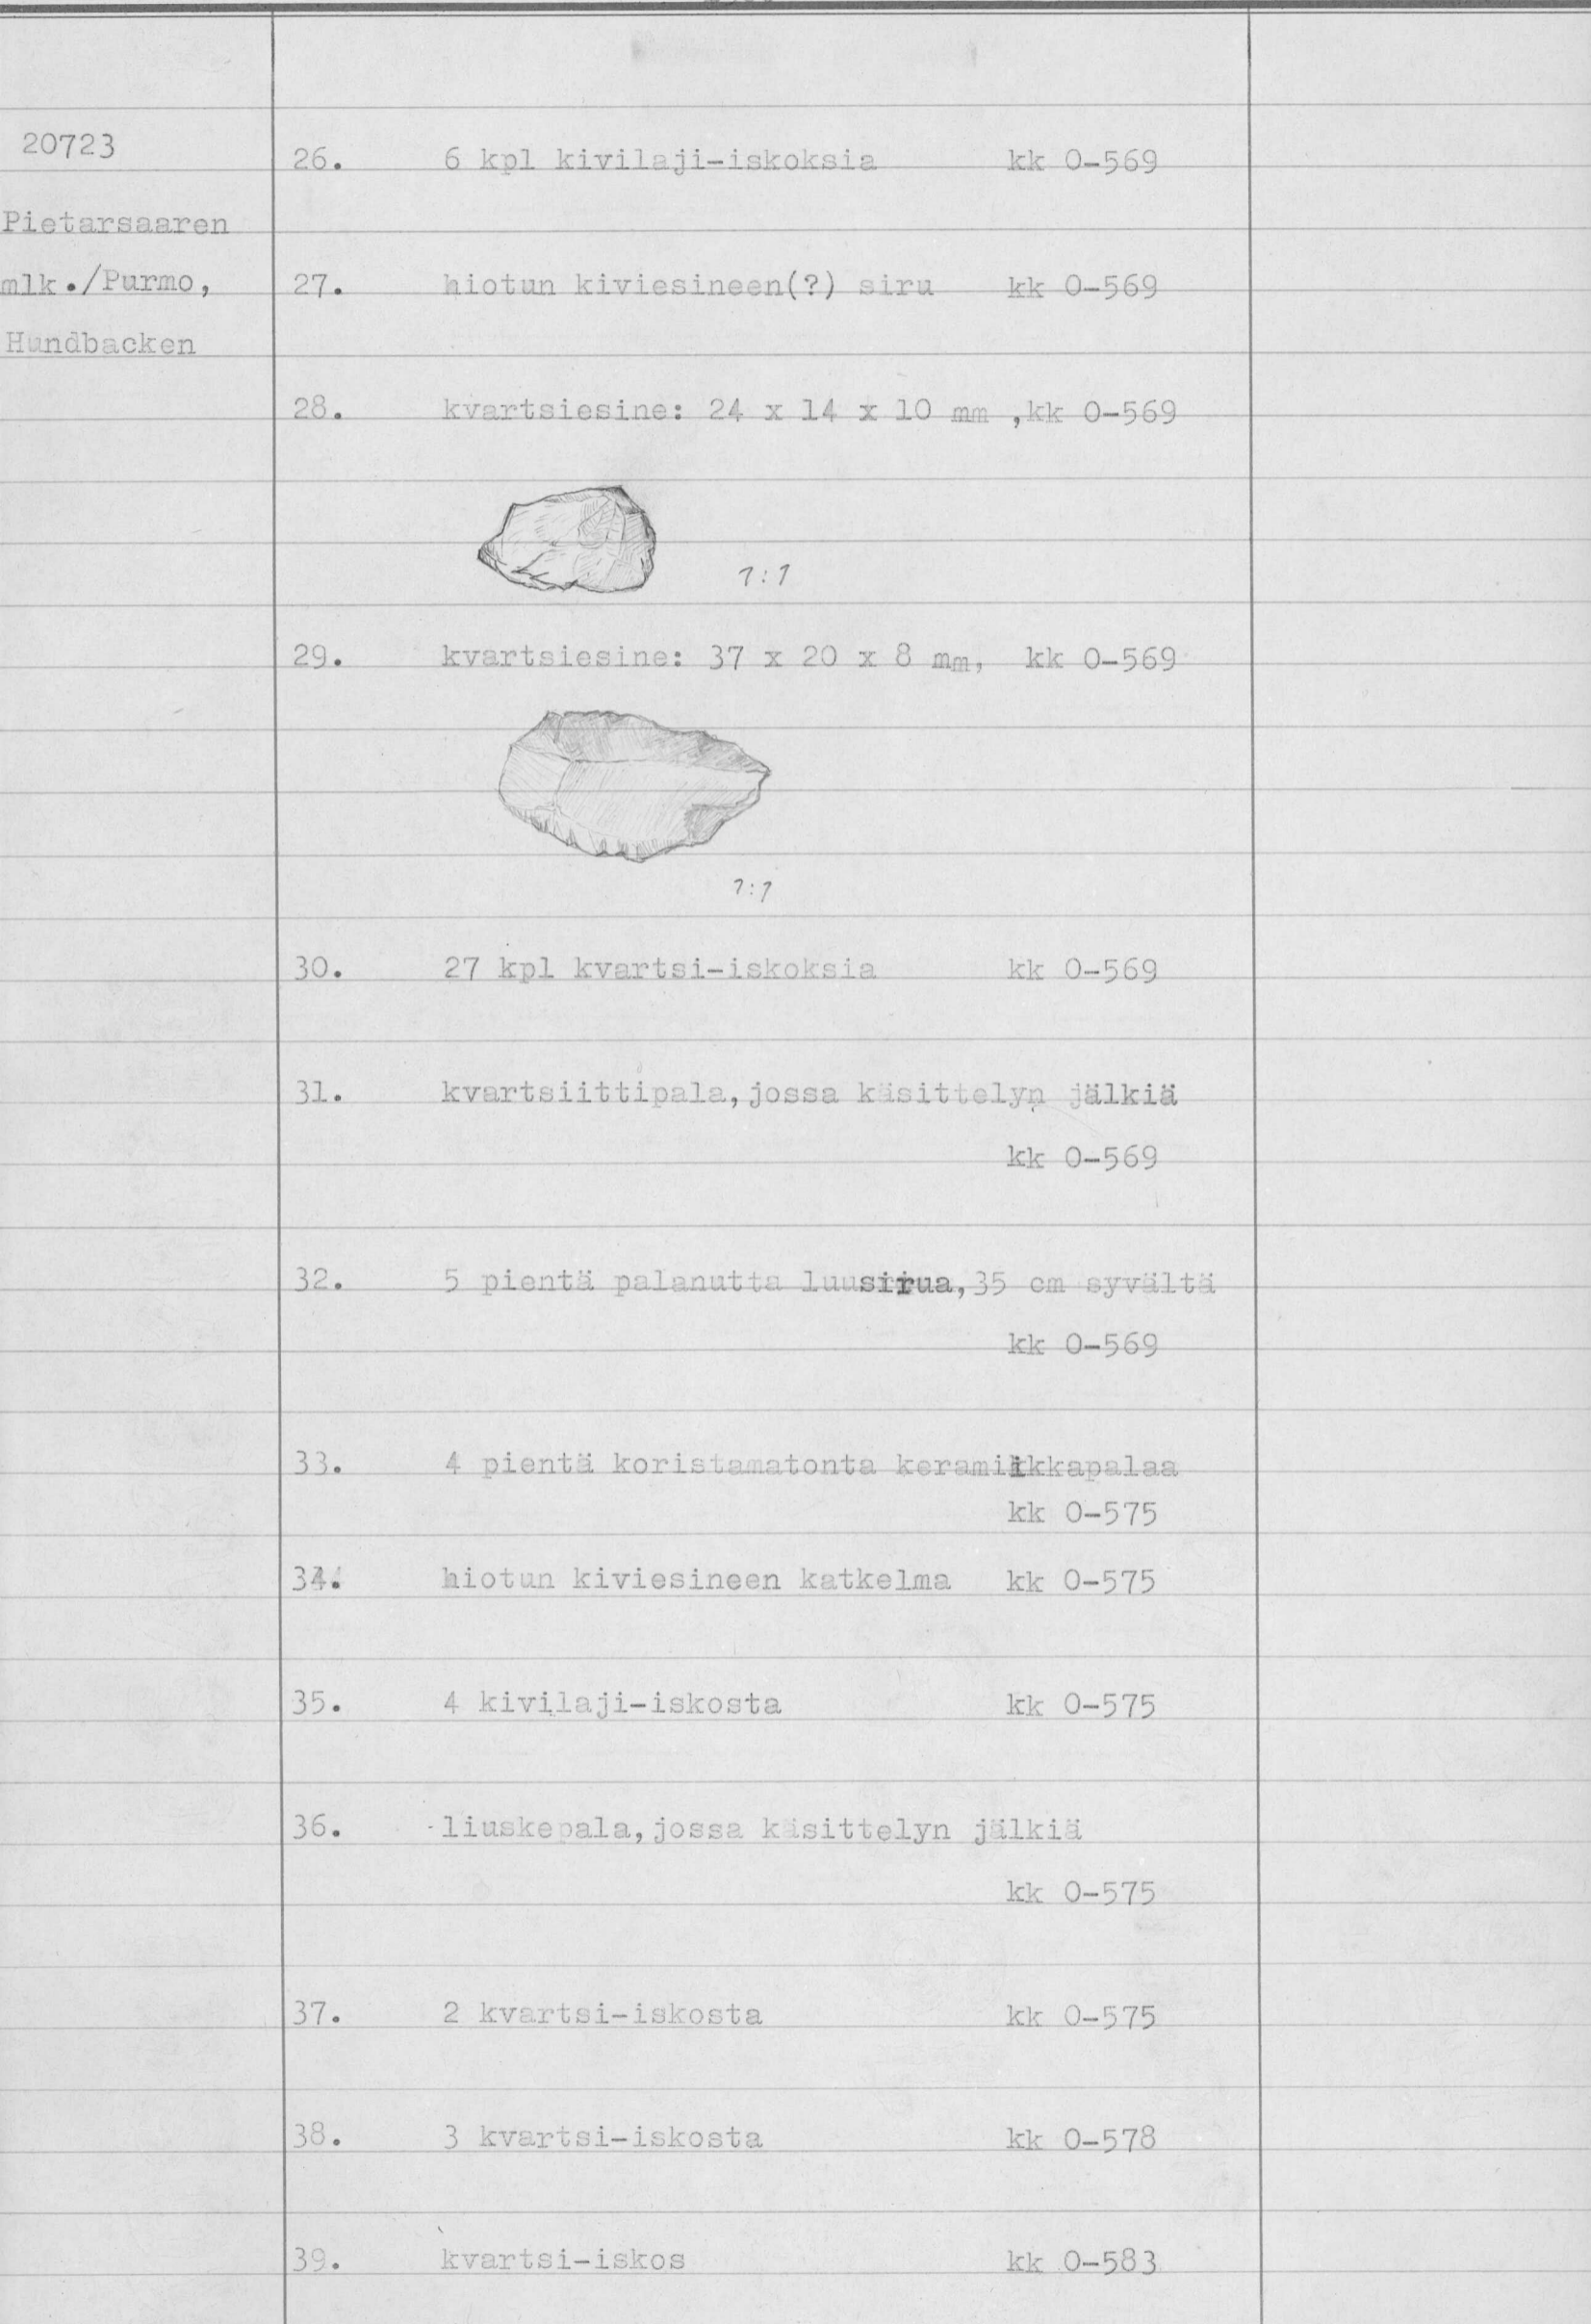 20723
Pietarsaaren
mlk./Purmo,
Hundbacken
26. 6 kpl kivilaji-iskoksia kk 0-569
27. hiotun kiviesineen(?) siru kk 0-569
28. kvartsiesine: 24 x 14 x 10 mm ,kk 0-569
1:1
29. kvartsiesine: 37 x 20 x 8 mm, kk 0-569
1:1
30. 27 kpl kvartsi-iskoksia kk 0-569
31. kvartsiittipala,jossa käsittelyn jälkiä
kk 0-569
32. 5 pientä palanutta luusirua,35 cm syvältä
kk 0-569
33. 4 pientä koristamatonta keramiikkapalaa
kk 0-575
34. hiotun kiviesineen katkelma kk 0-575
35. 4 kivilaji-iskosta kk 0-575
36. liuskepala,jossa käsittelyn jälkiä
kk 0-575
37. 2 kvartsi-iskosta kk 0-575
38. 3 kvartsi-iskosta kk 0-578
39. kvartsi-iskos kk 0-583